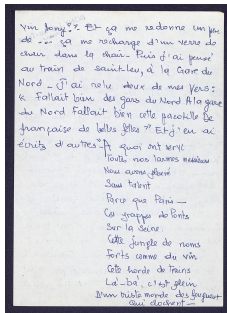 vin jany ? Et ça me redonne un peu
de --- ça me recharge d'un verre de
chair dans la chair. Puis j'ai pensé
au train de Saint-Leu, à la Gare du
Nord _ J'ai relu deux de mes vers :
« Fallait bien des gars du Nord A la gare
du Nord Fallait bien cette pacotille De
française de belles filles » Et j'en ai
écrits d'autres - A quoi ont servi
Toutes nos larmes messieurs
Nous avons pleuré
Sans talent
Parce que Paris —
Ces grappes de Ponts
Sur la Seine
Cette jungle de noms
Forts comme du vin
Cette horde de Trains
Là-bà, c'est plein
D'un triste monde des
qui